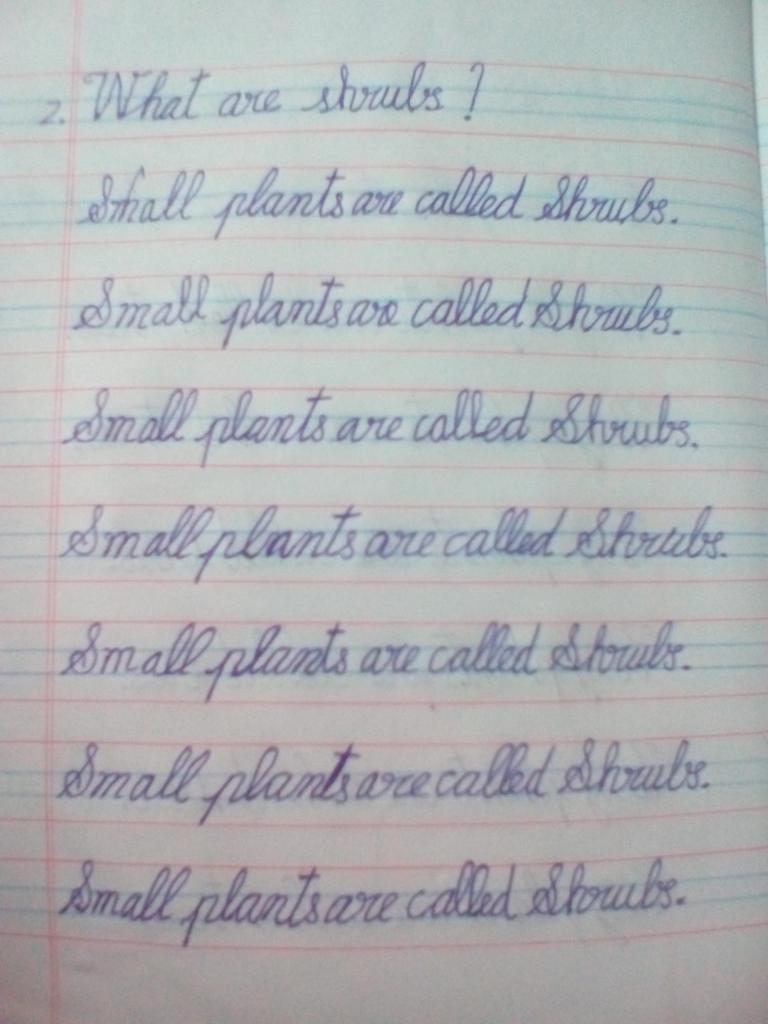 2. What are shrubs ?
Small plants are called Shrubs.
Small plants are called Shrubs.
Small plants are called Shrubs.
Small plants are called Shrubs.
Small plants are called Shrubs.
Small plants are called Shrubs.
Small plants are called Shrubs.